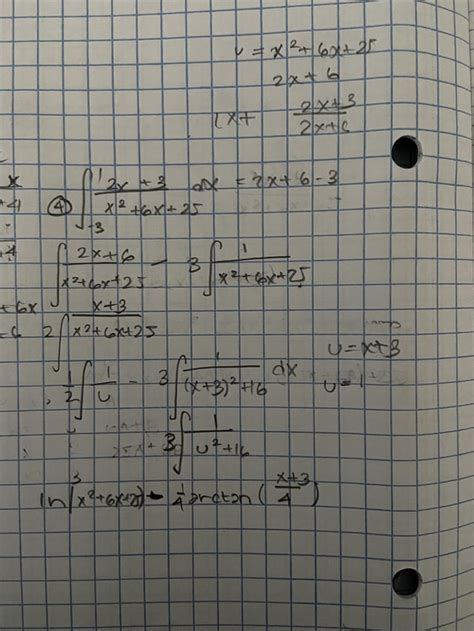 u = x² + 6x + 25
2x + 6
(x + (2x+3)/(2x+6
④ ∫₋₃¹ (2x + 3)/(x² + 6x + 25) dx = 2x + 6 - 3
∫ (2x + 6)/(x² + 6x + 25) - 3 ∫ 1/(x² + 6x + 25)
2 ∫ (x + 3)/(x² + 6x + 25)
u = x + 3
1/2 ∫ 1/u - 3 ∫ 1/((x + 3)² + 16) dx
u = 1
3 ∫ 1/(u² + 16)
ln |x² + 6x + 25| - 3/4 arctan ((x + 3)/4)